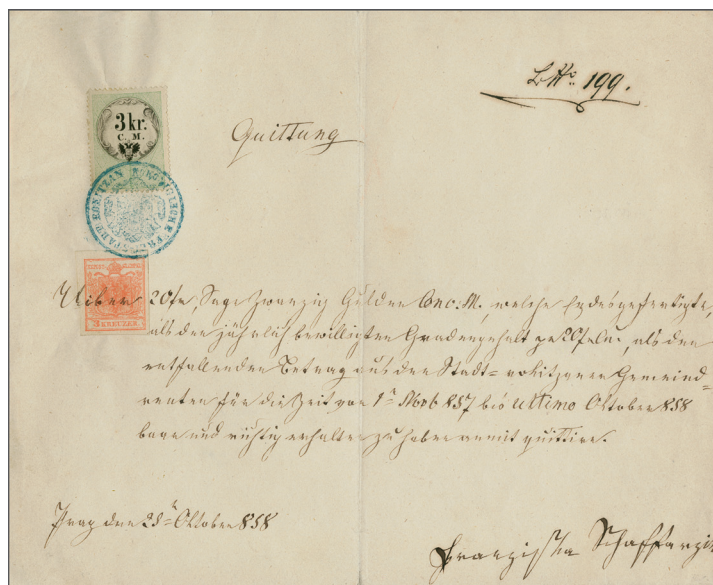 Lit№ 199.
3 kr.
C. M.
Quittung
ROKITZAN
3 KREUZER
Uiber 20 fr, Sage Zwanzig Gulden Conv: M., welche Endesgefertigte,
als den jährlich bewilligten Gnadengehalt pr 20 f als den
entfallenden Betrag aus den Stadt= rokitzaner Gemeind-
renten für die Zeit vom 1n Novb 857 bis ultimo Oktober 858
baar und richtig erhalten zu haben anmit quittire.
Prag den 25n Oktober 858
Franziska Schaffarzik